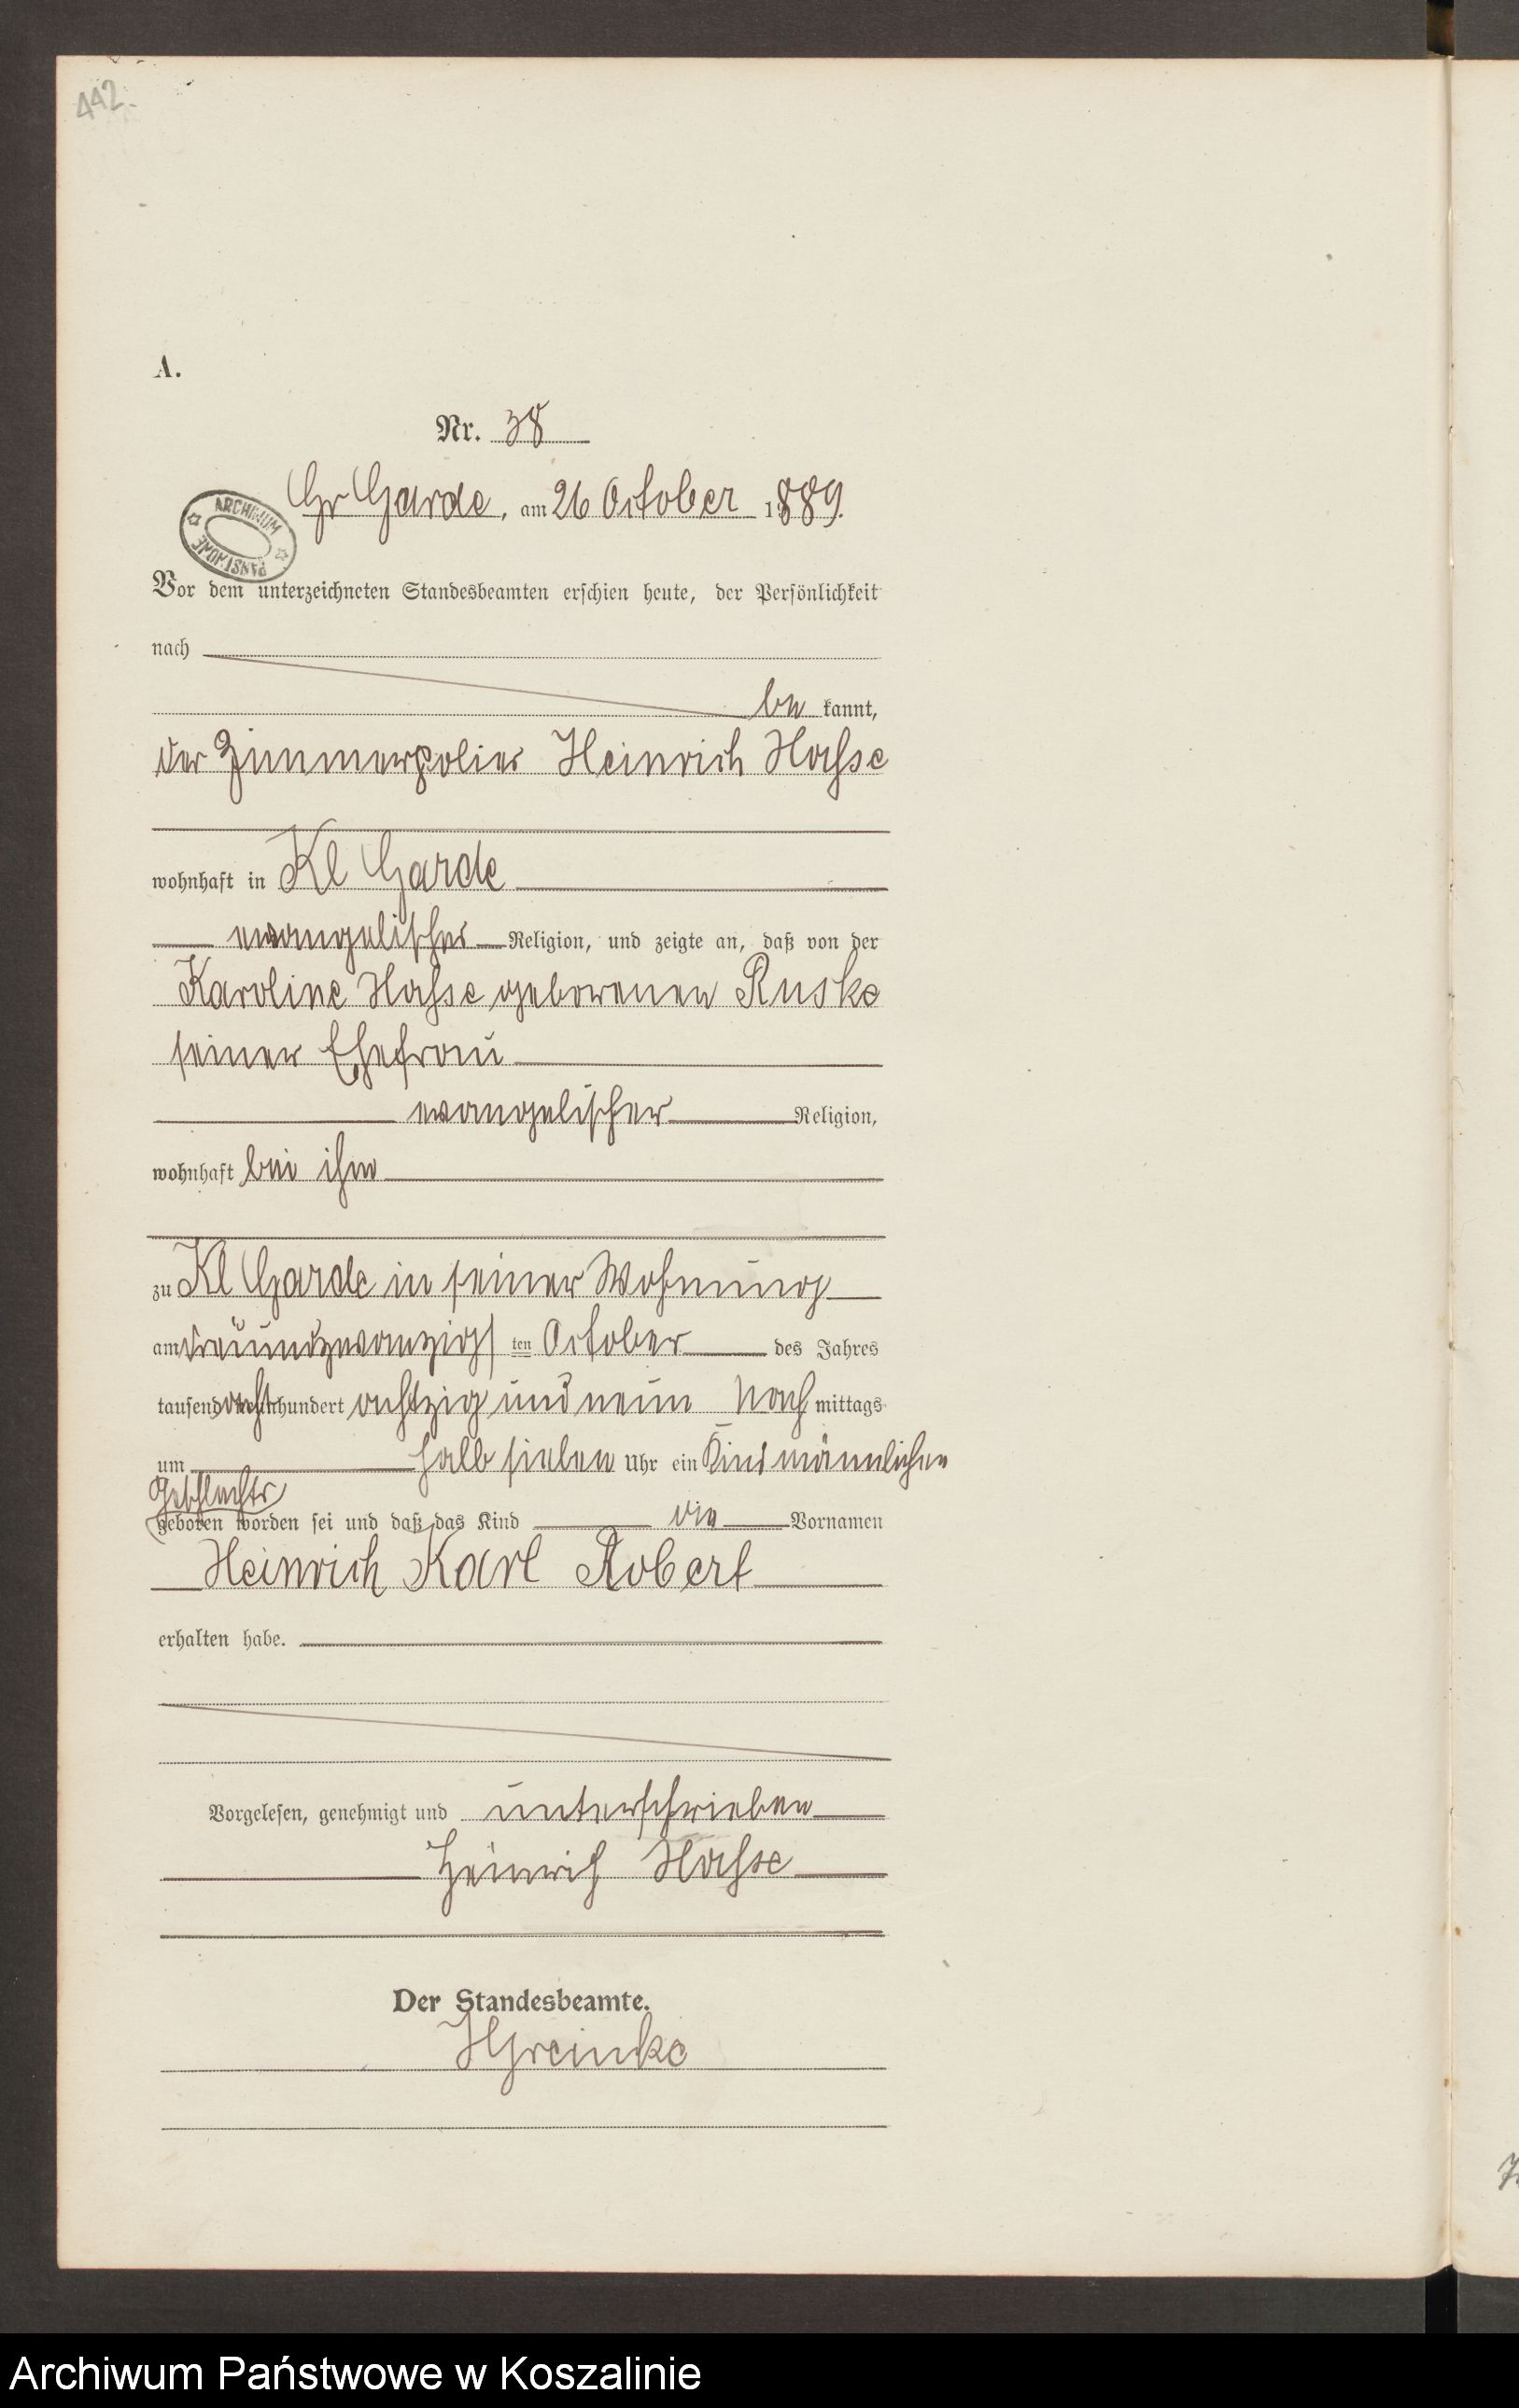 442.
A.
Nr. 38
Gr Garde, am 26 October 1889.
ARCHIWUM PAŃSTWOWE
Vor dem unterzeichneten Standesbeamten erschien heute, der Persönlichkeit
nach
be kannt,
der Zimmerpolier Heinrich Hasse
wohnhaft in Kl Garde
evangelischer Religion, und zeigte an, daß von der
Karoline Hasse geborenen Ruske
seiner Ehefrau
evangelischer Religion,
wohnhaft bei ihm
zu Kl Garde in seiner Wohnung
am dreiundzwanzigsten October des Jahres
tausend acht hundert achtzig und neun Nach mittags
um halb sieben Uhr ein Kind männlichen
Geschlechts
geboren worden sei und daß das Kind die Vornamen
Heinrich Karl Robert
erhalten habe.
Vorgelesen, genehmigt und unterschrieben
Heinrich Hasse
Der Standesbeamte.
HGreinke
Archiwum Państwowe w Koszalinie